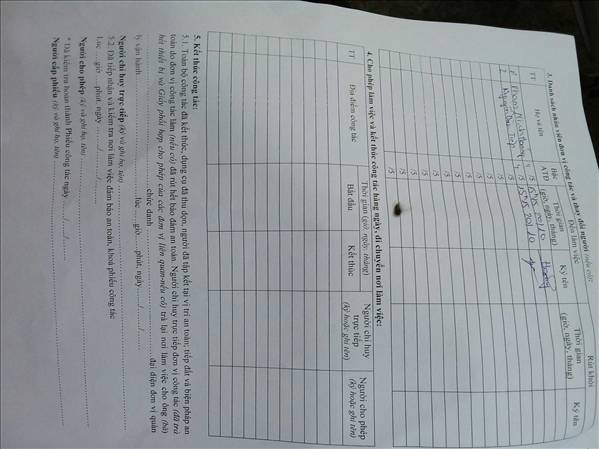 3. Danh sách nhân viên đơn vị công tác và thay đổi người (nếu có):
TT
Họ và tên
Bậc ATĐ
Đến làm việc
Thời gian (giờ, ngày, tháng)
Ký tên
Rút khỏi
Thời gian (giờ, ngày, tháng)
Ký tên
/5
/5
/5
/5
/5
/5
/5
/5
/5
4. Cho phép làm việc và kết thúc công tác hàng ngày, di chuyển nơi làm việc:
TT
Địa điểm công tác
Thời gian (giờ, ngày, tháng)
Bắt đầu
Kết thúc
Người chỉ huy trực tiếp
(ký hoặc ghi tên)
Người cho phép
(ký hoặc ghi tên)
5. Kết thúc công tác:
5.1. Toàn bộ công tác đã kết thúc, dụng cụ đã thu dọn, người đã tập kết tại vị trí an toàn; tiếp đất và biện pháp an
toàn do đơn vị công tác làm (nếu có) đã rút hết bảo đảm an toàn. Người chỉ huy trực tiếp đơn vị công tác (đã trả
hết thiết bị và Giấy phối hợp cho phép của các đơn vị liên quan-nếu có) trả lại nơi làm việc cho ông (bà)
............ chức danh ............ đại diện đơn vị quản
lý vận hành ............ lúc .....giờ .....phút, ngày ...../...../......
Người chỉ huy trực tiếp (ký và ghi họ, tên) ............
5.2. Đã tiếp nhận và kiểm tra nơi làm việc đảm bảo an toàn, khoá phiếu công tác
Lúc .....giờ .....phút, ngày ...../...../......
Người cho phép (ký và ghi họ, tên) ............
* Đã kiểm tra hoàn thành Phiếu công tác ngày ...../...../......
Người cấp phiếu (ký và ghi họ, tên) ............